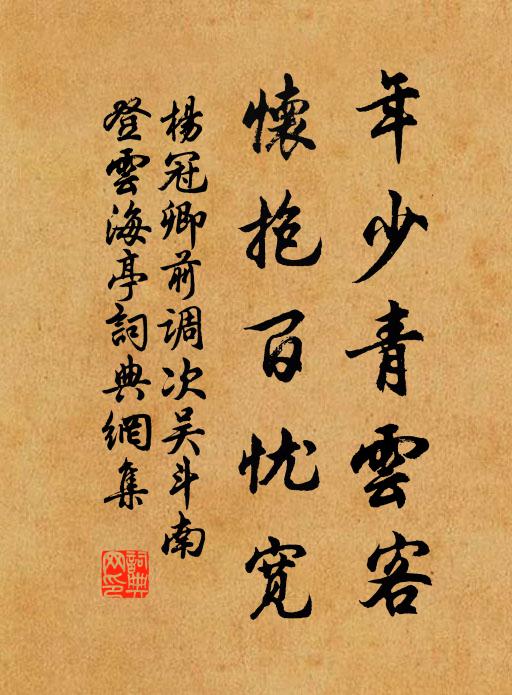 年少青雲客
懷抱百忧寬
楊冠卿前调次吴斗南
登雲海亭詞典網集
詞典网印